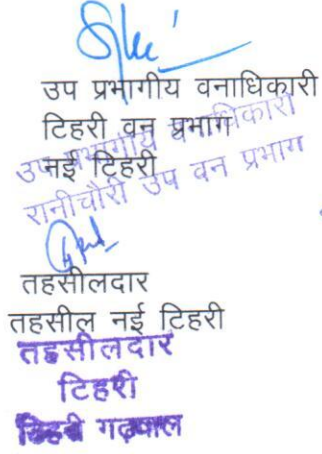 उप प्रभागीय वनाधिकारी
टिहरी वन प्रभाग
नई टिहरी
उप प्रभागीय वनाधिकारी
रानीचौरी उप वन प्रभाग
तहसीलदार
तहसील नई टिहरी
तहसीलदार
टिहरी
टिहरी गढ़वाल